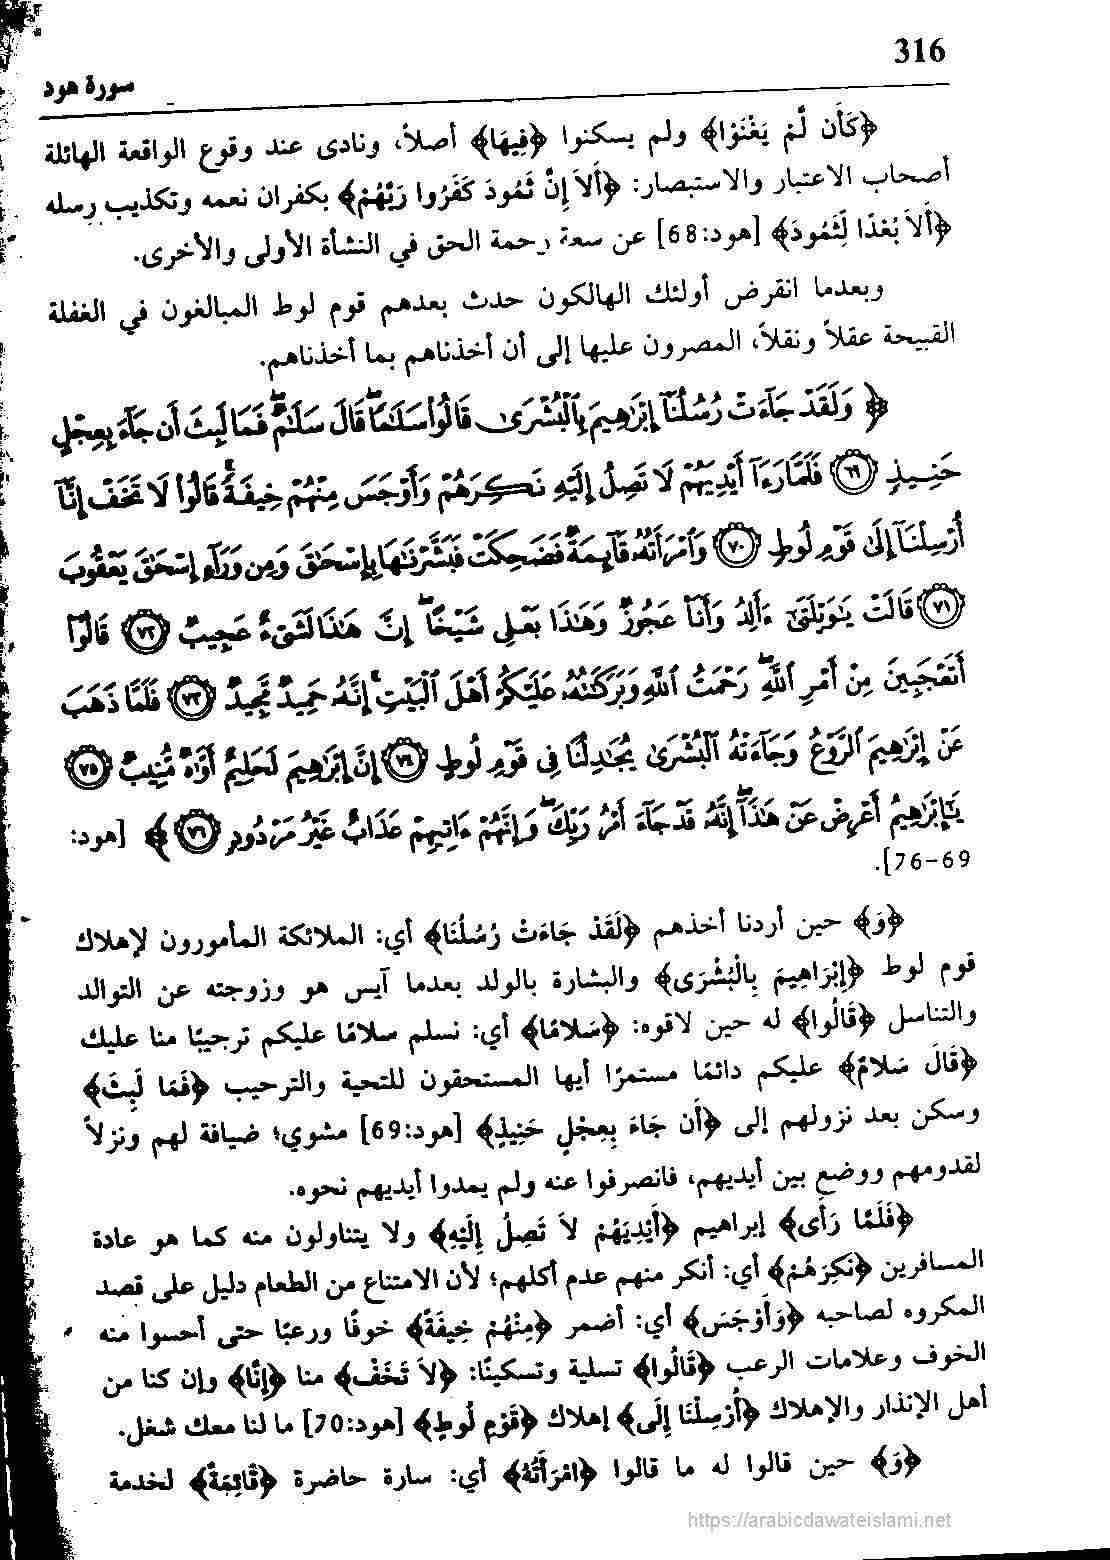 316
سورة هود
﴿كَأَن لَّمْ يَغْنَوْا﴾ ولم يسكنوا ﴿فِيهَا﴾ أصلاً، ونادى عند وقوع الواقعة الهائلة
أصحاب الاعتبار والاستبصار: ﴿أَلاَ إِنَّ ثَمُودَ كَفَرُوا رَبَّهُمْ﴾ بكفران نعمه وتكذيب رسله
﴿أَلاَ بُعْدًا لِّثَمُودَ﴾ [هود:68] عن سعة رحمة الحق في النشأة الأولى والأخرى.
وبعدما انقرض أولئك الهالكون حدث بعدهم قوم لوط المبالغون في الغفلة
القبيحة عقلاً ونقلاً، المصرون عليها إلى أن أخذناهم بما أخذناهم.
﴿وَلَقَدْ جَآءَتْ رُسُلُنَآ إِبْرَٰهِيمَ بِٱلْبُشْرَىٰ قَالُوا۟ سَلَٰمًا ۖ قَالَ سَلَٰمٌ ۖ فَمَا لَبِثَ أَن جَآءَ بِعِجْلٍ
حَنِيذٍ ﴿٦٩﴾ فَلَمَّا رَءَآ أَيْدِيَهُمْ لَا تَصِلُ إِلَيْهِ نَكِرَهُمْ وَأَوْجَسَ مِنْهُمْ خِيفَةً ۚ قَالُوا۟ لَا تَخَفْ إِنَّآ
أُرْسِلْنَآ إِلَىٰ قَوْمِ لُوطٍ ﴿٧٠﴾ وَٱمْرَأَتُهُۥ قَآئِمَةٌ فَضَحِكَتْ فَبَشَّرْنَٰهَا بِإِسْحَٰقَ وَمِن وَرَآءِ إِسْحَٰقَ يَعْقُوبَ
﴿٧١﴾ قَالَتْ يَٰوَيْلَتَىٰٓ ءَأَلِدُ وَأَنَا۠ عَجُوزٌ وَهَٰذَا بَعْلِى شَيْخًا ۖ إِنَّ هَٰذَا لَشَىْءٌ عَجِيبٌ ﴿٧٢﴾ قَالُوٓا۟
أَتَعْجَبِينَ مِنْ أَمْرِ ٱللَّهِ ۖ رَحْمَتُ ٱللَّهِ وَبَرَكَٰتُهُۥ عَلَيْكُمْ أَهْلَ ٱلْبَيْتِ ۚ إِنَّهُۥ حَمِيدٌ مَّجِيدٌ ﴿٧٣﴾ فَلَمَّا ذَهَبَ
عَنْ إِبْرَٰهِيمَ ٱلرَّوْعُ وَجَآءَتْهُ ٱلْبُشْرَىٰ يُجَٰدِلُنَا فِى قَوْمِ لُوطٍ ﴿٧٤﴾ إِنَّ إِبْرَٰهِيمَ لَحَلِيمٌ أَوَّٰهٌ مُّنِيبٌ ﴿٧٥﴾
يَٰٓإِبْرَٰهِيمُ أَعْرِضْ عَنْ هَٰذَآ ۖ إِنَّهُۥ قَدْ جَآءَ أَمْرُ رَبِّكَ ۖ وَإِنَّهُمْ ءَاتِيهِمْ عَذَابٌ غَيْرُ مَرْدُودٍ ﴿٧٦﴾﴾ [هود:
76-69].
﴿وَ﴾ حين أردنا أخذهم ﴿لَقَدْ جَاءَتْ رُسُلُنَا﴾ أي: الملائكة المأمورون لإهلاك
قوم لوط ﴿إِبْرَاهِيمَ بِالْبُشْرَى﴾ والبشارة بالولد بعدما آيس هو وزوجته عن التوالد
والتناسل ﴿قَالُوا﴾ له حين لاقوه: ﴿سَلامًا﴾ أي: نسلم سلامًا عليكم ترجيبًا منا عليك
﴿قَالَ سَلامٌ﴾ عليكم دائمًا مستمرًا أيها المستحقون للتحية والترحيب ﴿فَمَا لَبِثَ﴾
وسكن بعد نزولهم إلى ﴿أَن جَاءَ بِعِجْلٍ حَنِيذٍ﴾ [هود:69] مشوي؛ ضيافة لهم ونزلاً
لقدومهم ووضع بين أيديهم، فانصرفوا عنه ولم يمدوا أيديهم نحوه.
﴿فَلَمَّا رَأَى﴾ إبراهيم ﴿أَيْدِيَهُمْ لاَ تَصِلُ إِلَيْهِ﴾ ولا يتناولون منه كما هو عادة
المسافرين ﴿نَكِرَهُمْ﴾ أي: أنكر منهم عدم أكلهم؛ لأن الامتناع من الطعام دليل على قصد
المكروه لصاحبه ﴿وَأَوْجَسَ﴾ أي: أضمر ﴿مِنْهُمْ خِيفَةً﴾ خوفًا ورعبًا حتى أحسوا منه
الخوف وعلامات الرعب ﴿قَالُوا﴾ تسلية وتسكينًا: ﴿لاَ تَخَفْ﴾ منا ﴿إِنَّا﴾ وإن كنا من
أهل الإنذار والإهلاك ﴿أُرْسِلْنَا إِلَى﴾ إهلاك ﴿قَوْمِ لُوطٍ﴾ [هود:70] ما لنا معك شغل.
﴿وَ﴾ حين قالوا له ما قالوا ﴿امْرَأَتُهُ﴾ أي: سارة حاضرة ﴿قَائِمَةٌ﴾ لخدمة
https://arabicdawateislami.net